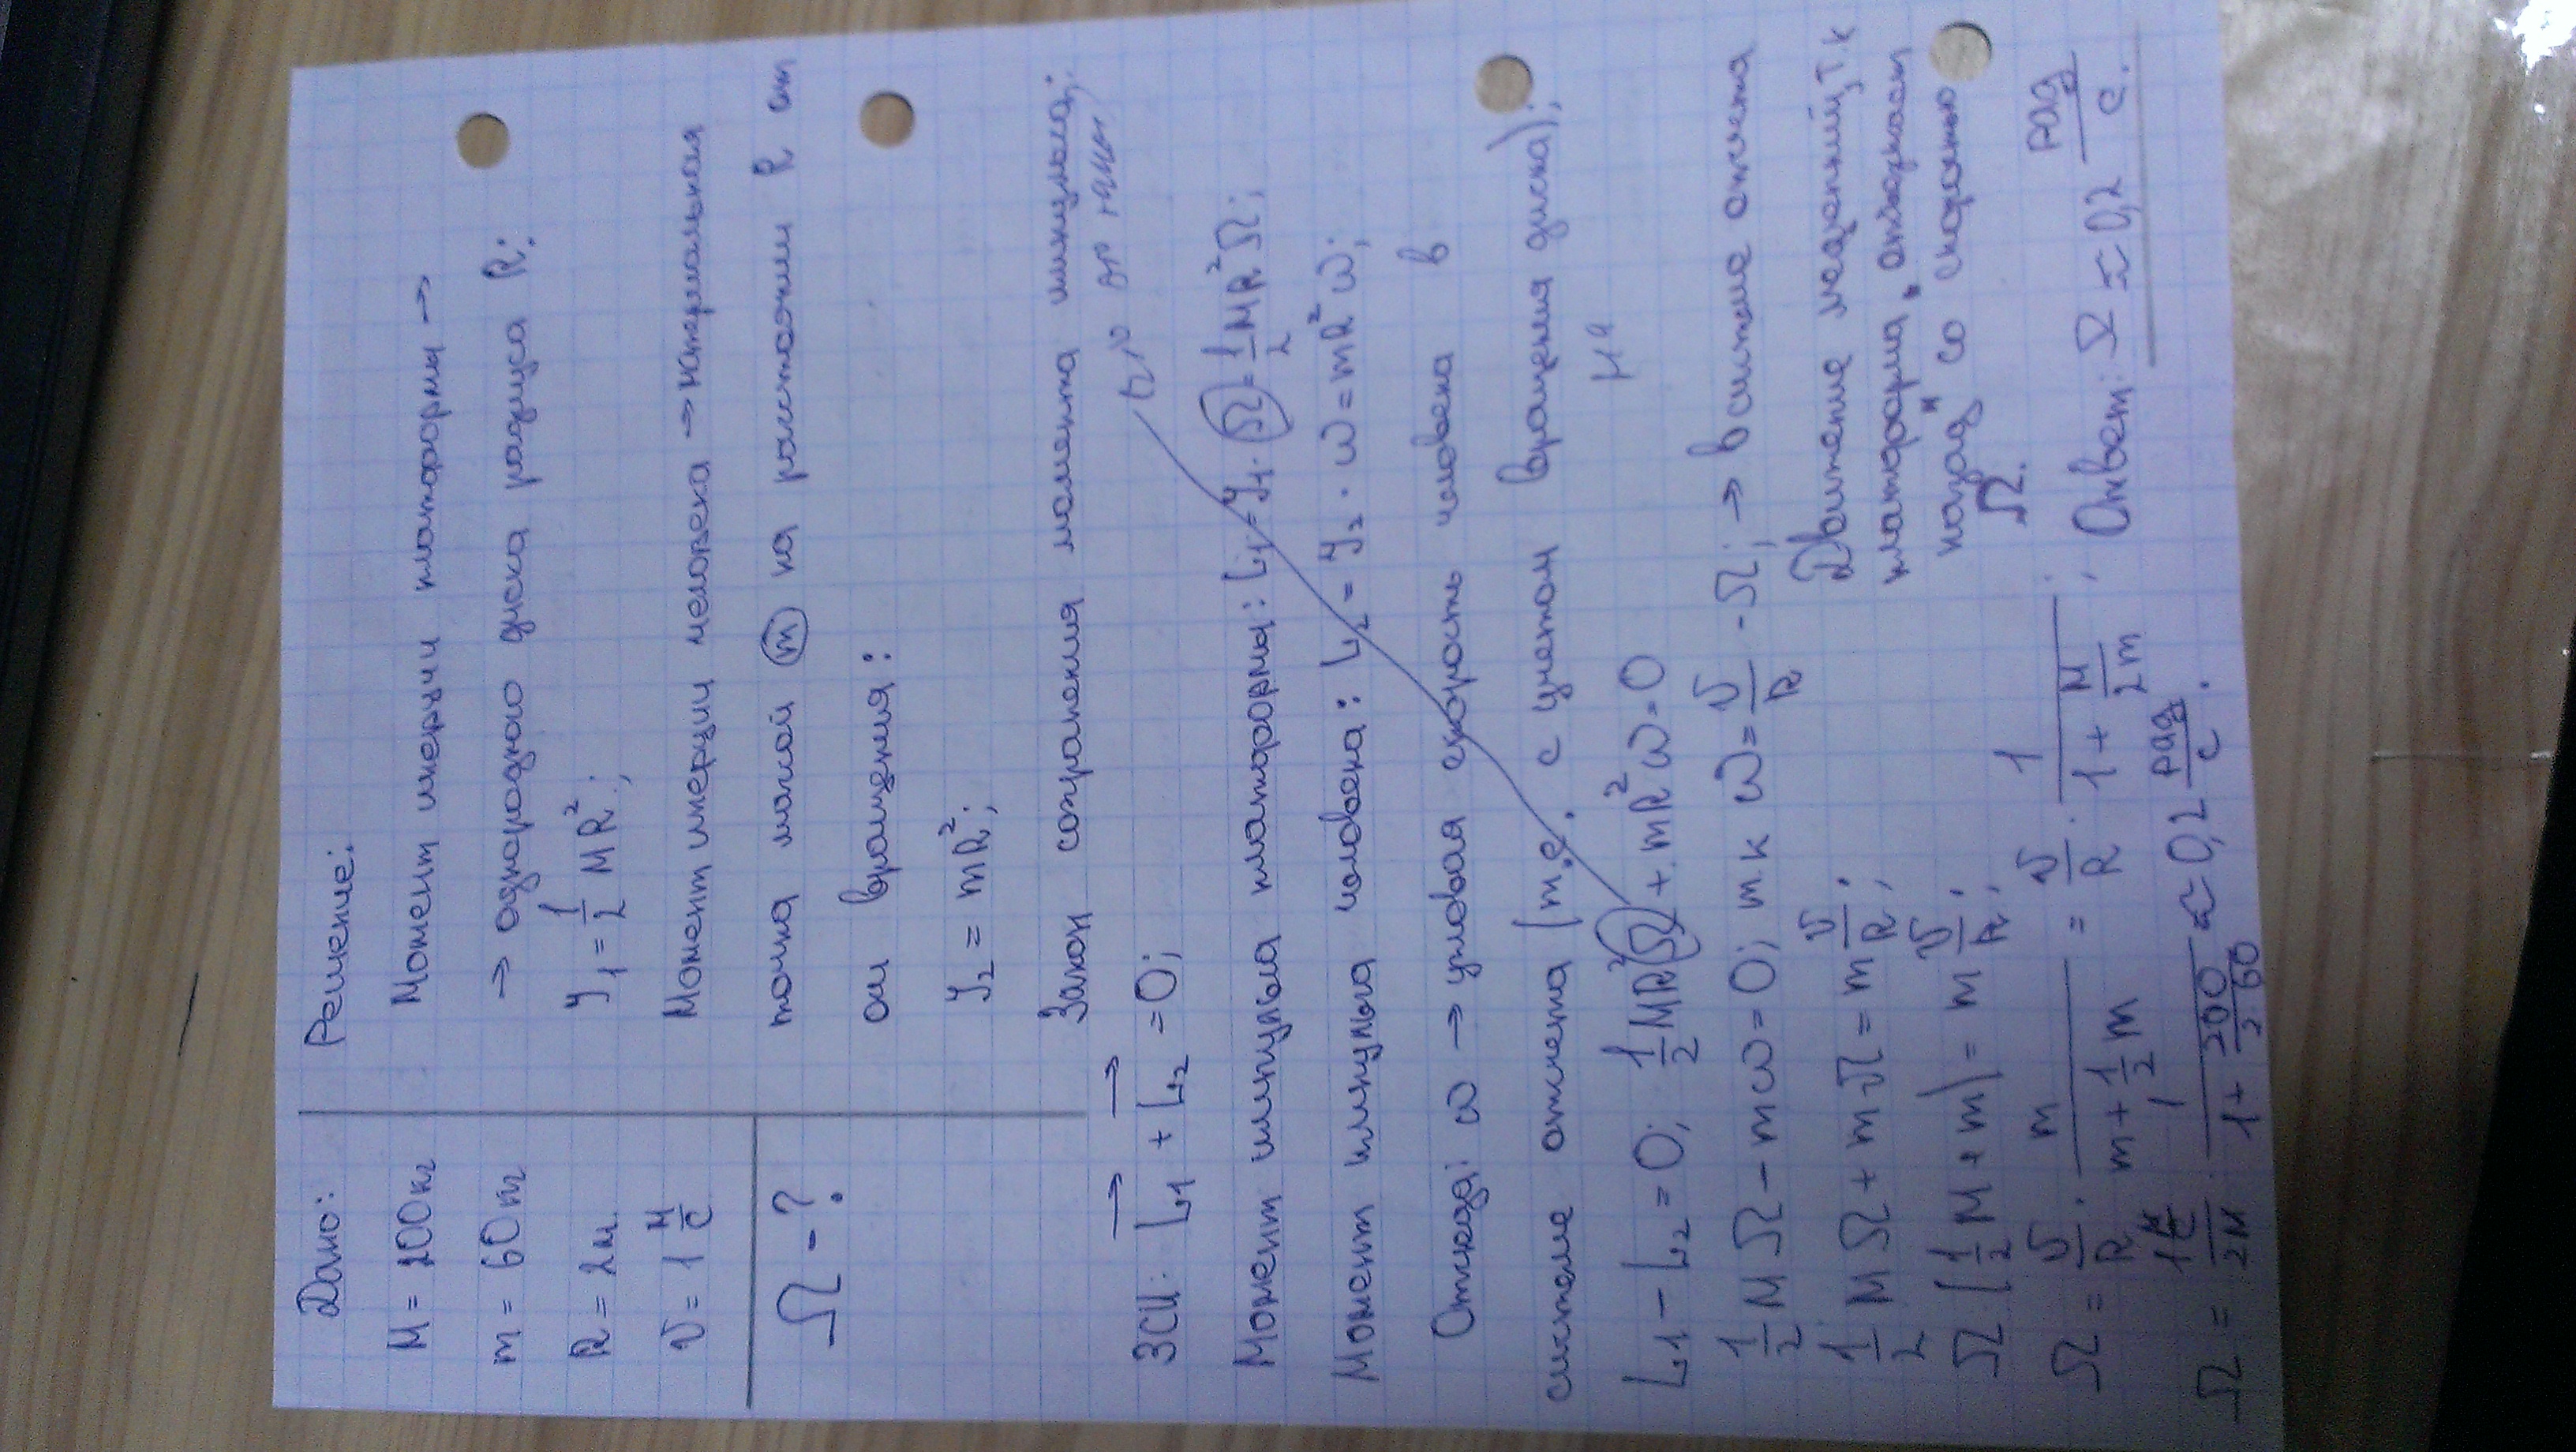 Дано:
M = 200кг
m = 60кг
R = 2м
v = 1 м/с
Ω - ?
Решение:
Момент инерции платформы →
→ однородного диска радиуса R:
J₁ = 1/2 MR²;
Момент инерции человека → материальная
точка массой m на расстоянии R от
оси вращения:
J₂ = mR²;
Закон сохранения момента импульса:
ЗСИ: L₁ + L₂ = 0;
Момент импульса платформы: L₁ = J₁ · Ω = 1/2 MR²Ω;
Момент импульса человека: L₂ = J₂ · ω = mR²ω;
Отсюда: ω → угловая скорость человека в
системе отсчета (т.е. с учетом вращения диска);
L₁ - L₂ = 0; 1/2 MR²Ω + mR²ω = 0
1/2 MΩ - mω = 0; т.к ω = v/R - Ω; → в системе отсчета
1/2 MΩ + mΩ = m v/R;
Движение медленнее, т к
платформа "отъезжает
назад" со скоростью
Ω.
Ω (1/2 M + m) = m v/R;
Ω = v/R · m/(m + 1/2 m) = v/R · 1/(1 + M/2m);
Ω = 1 м/с / 2м · 1/(1 + 200/2·60) ≈ 0,2 рад/с.
Ответ: Ω ≈ 0,2 рад/с.